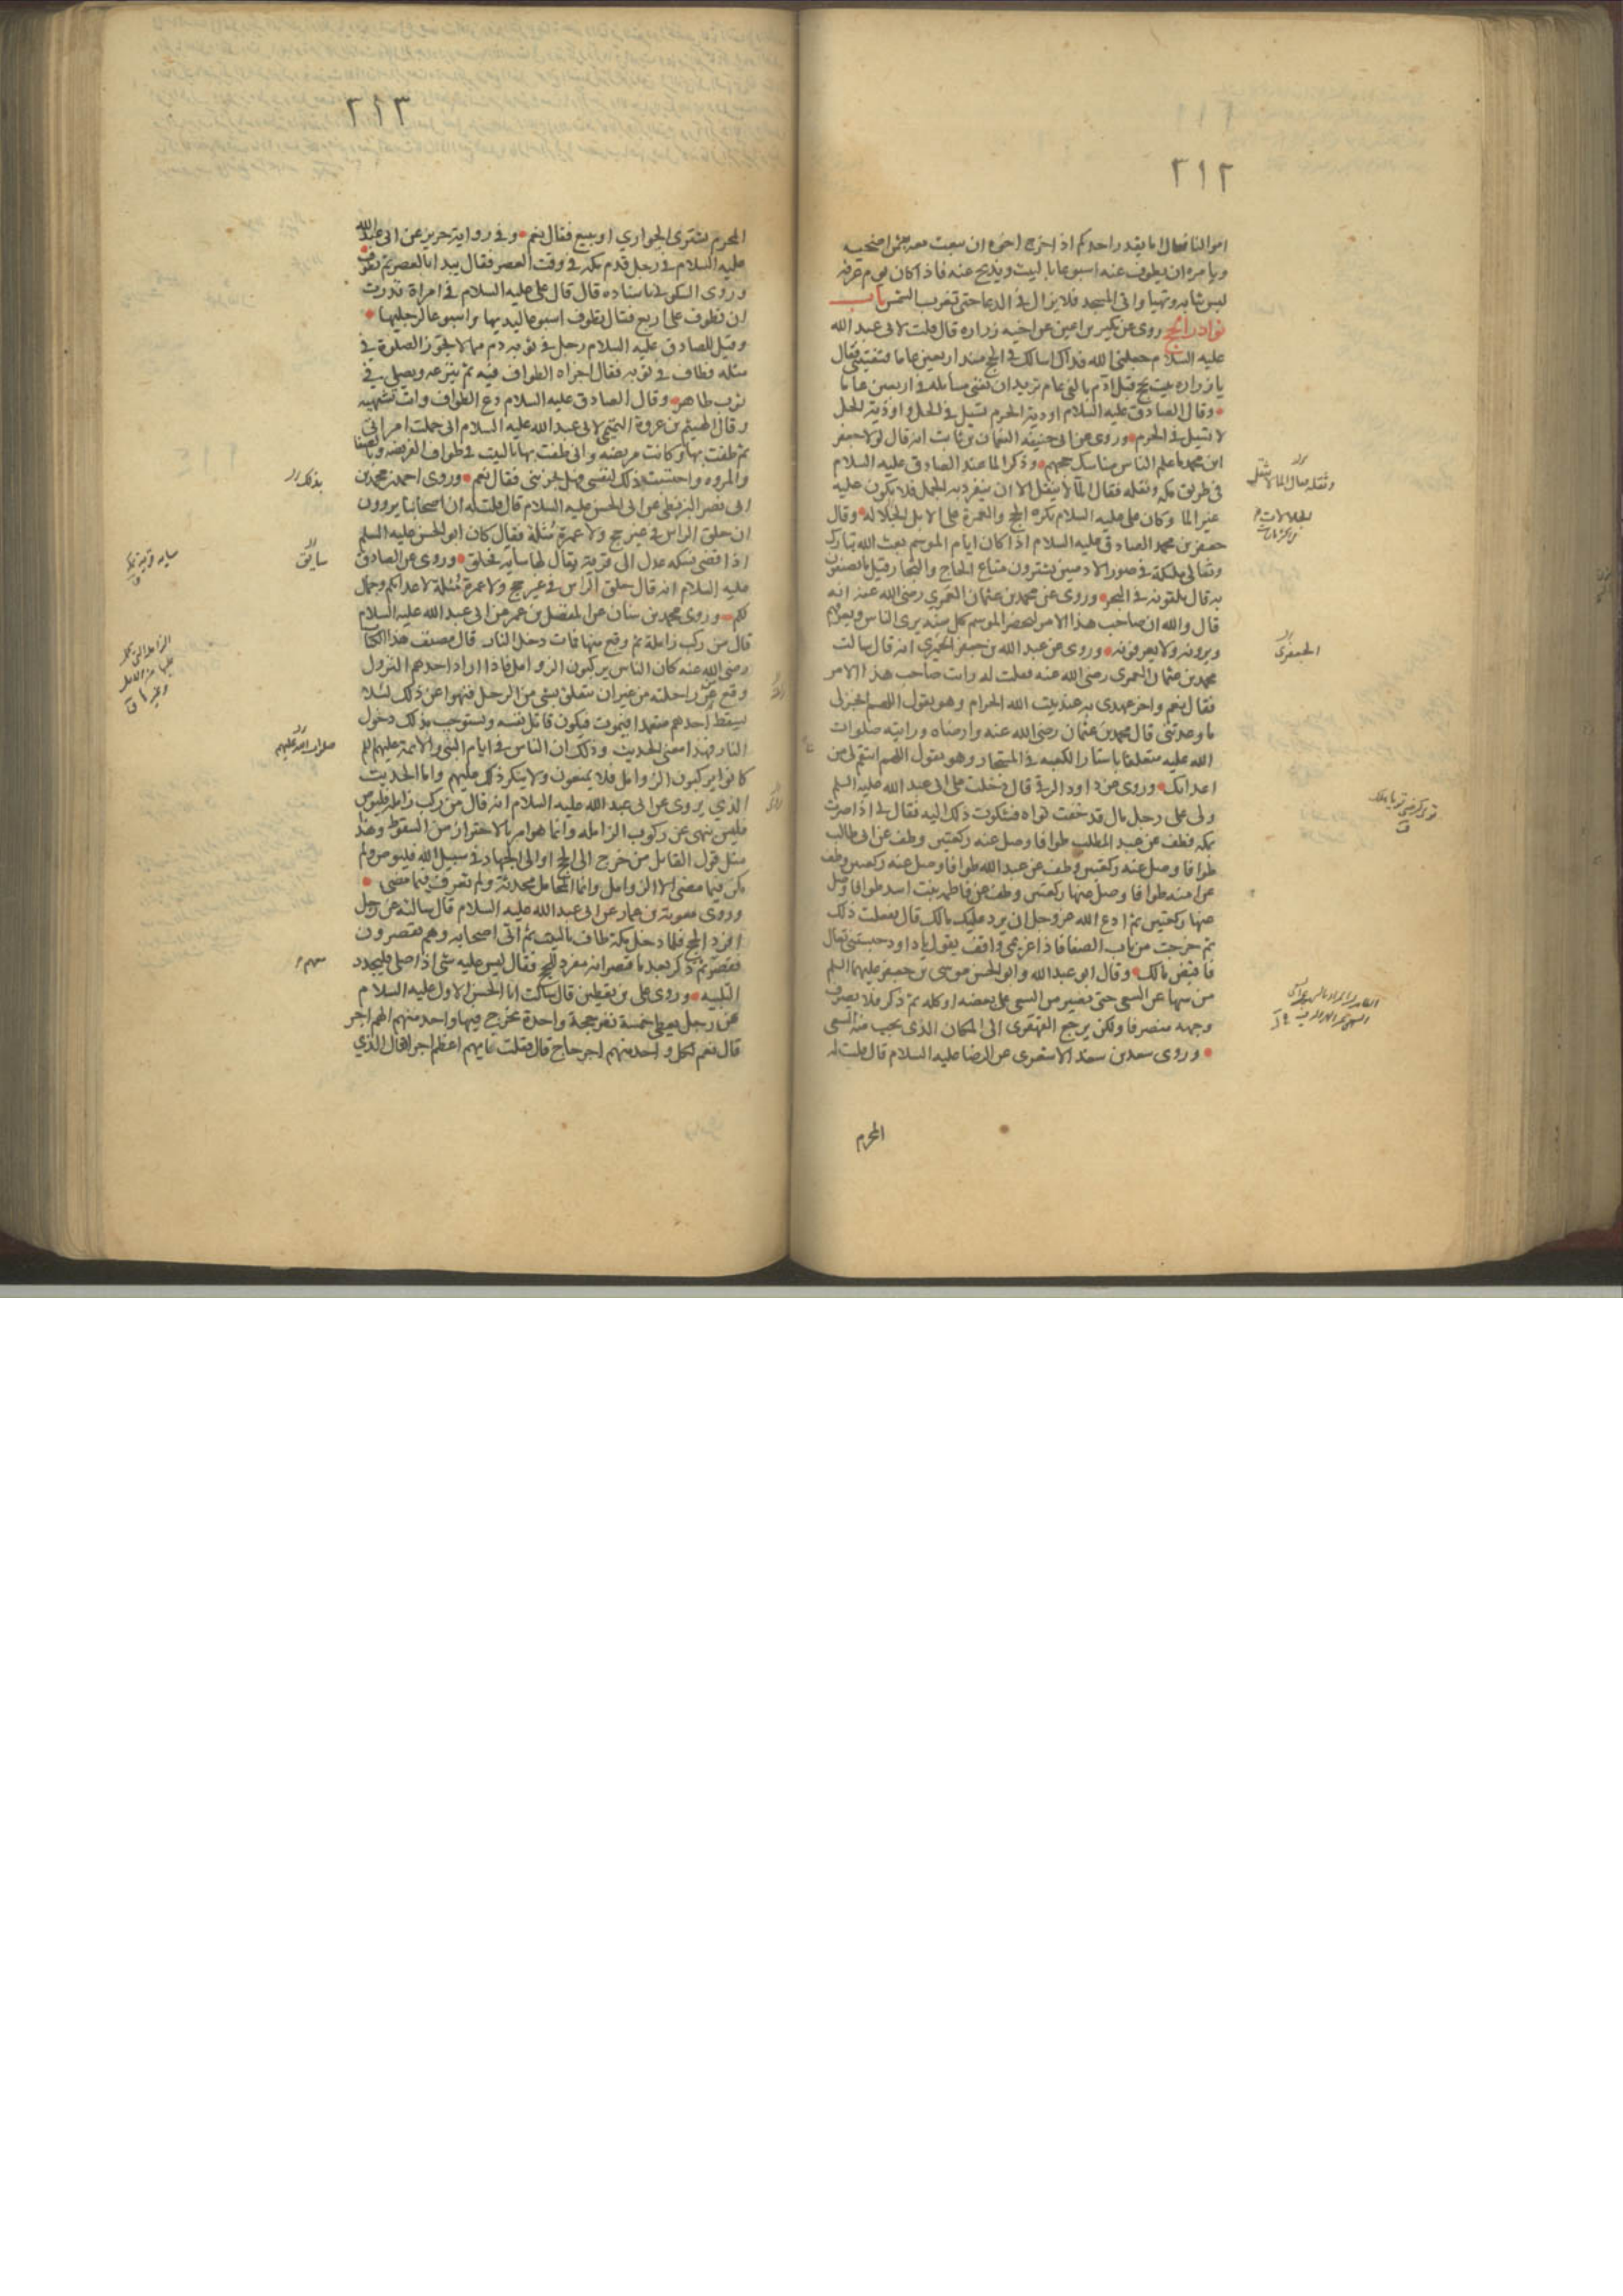 ٢١٢
اموالنا فقال اما يقدر احدكم اذا خرج اخوه ان يبعث معه بثمن اضحيه
ويامره ان يطوف عنه اسبوعا بالبيت ويذبح عنه فاذا كان يوم عرفه
لبس ثيابه وتهيا واتى المسجد فلا يزال في الدعا حتى تغرب الشمس باب
نوادر الحج روى عن بكير بن اعين عن اخيه زراره قال قلت لابى عبد الله
عليه السلام جعلنى الله فداك اسالك في الحج منذ اربعين عاما فتفتينى فقال
يا زراره بيت يحج قبل ادم بالفى عام تريد ان تفنى مسايله في اربعين عاما
وقال الصادق عليه السلام اودية الحرم تسيل في الحل واودية الحل
لا تسيل في الحرم وروى عن ابى حنيفه النعمان بن ثابت انه قال لولا جعفر
ابن محمد ما علم الناس مناسك حجهم وذكر الما عند الصادق عليه السلام
في طريق مكه وثقله فقال الما لا يثقل الا ان ينفرد به الجمل فلا يكون عليه
غير الما وكان على عليه السلام يكره الحج والعمرة على الابل الجلاله وقال
جعفر بن محمد الصادق عليه السلام اذا كان ايام الموسم بعث الله تبارك
وتعالى ملئكة في صور الادميين يشترون متاع الحاج والتجار قيل ما يصنعون
به قال يلقونه في البحر وروى عن محمد بن عثمان العمرى رضى الله عنه انه
قال والله ان صاحب هذا الامر ليحضر الموسم كل سنه يرى الناس ويعرفهم
ويرونه ولا يعرفونه وروى عن عبد الله بن جعفر الحميرى انه قال سالت
محمد بن عثمان العمرى رضى الله عنه فقلت له رايت صاحب هذا الامر
فقال نعم واخر عهدى به عند بيت الله الحرام وهو يقول اللهم انجز لى
ما وعدتنى قال محمد بن عثمان رضى الله عنه وارضاه ورايته صلوات
الله عليه متعلقا باستار الكعبه في المستجار وهو يقول اللهم انتقم لى من
اعدائك وروى عن داود الرقى قال دخلت على ابى عبد الله عليه السلم
ولى على رجل مال قد خفت تواه فشكوت ذلك اليه فقال لى اذا صرت
بمكه فطف عن عبد المطلب طوافا وصل عنه ركعتين وطف عن ابى طالب
طوافا وصل عنه ركعتين وطف عن عبد الله طوافا وصل عنه ركعتين وطف
عن امنه طوافا وصل عنها ركعتين وطف عن فاطمه بنت اسد طوافا وصل
عنها ركعتين ثم ادع الله عز وجل ان يرد عليك مالك قال ففعلت ذلك
ثم خرجت من باب الصفا فاذا غريمى واقف يقول يا داود حبستنى تعال
فاقبض مالك وقال ابو عبد الله وابو الحسن موسى بن جعفر عليهما السلم
من سها عن السعى حتى يصير من السعى على بعضه او كله ثم ذكر فلا يصرف
وجهه منصرفا ولكن يرجع القهقرى الى المكان الذى يجب منه السعى
وروى سعد بن سعد الاشعرى عن الرضا عليه السلام قال قلت له
المحرم
الجعفرى
٢١٣
المحرم يشترى الجوارى او يبيع فقال نعم وفي رواية حريز عن ابى عبد الله
عليه السلام في رجل قدم مكه في وقت العصر فقال يبدا بالعصر ثم يطوف
وروى السكونى باسناده قال قال على عليه السلام في امراة نذرت
ان تطوف على اربع فقال تطوف اسبوعا ليديها واسبوعا لرجليها
وقيل للصادق عليه السلام رجل في ثوبه دم مما لا يجوز الصلوة في
مثله فطاف في ثوبه فقال اجزاه الطواف فيه ثم ينزعه ويصلى في
ثوب طاهر وقال الصادق عليه السلام دع الطواف وانت تشتهيه
وقال الهيثم بن عروة التميمى لابى عبد الله عليه السلام انى حملت امراتى
ثم طفت بها وكانت مريضه وانى طفت بها بالبيت في طواف الفريضه وبالصفا
والمروه واحتسبت بذلك لنفسى فهل يجزينى فقال نعم وروى احمد بن محمد بن
ابى نصر البزنطى عن ابى الحسن عليه السلام قال قلت له ان اصحابنا يروون
ان حلق الراس في غير حج ولا عمرة مثلة فقال كان ابو الحسن عليه السلم
اذا قضى نسكه عدل الى قرية يقال لها سايه فحلق وروى عن الصادق
عليه السلام انه قال حلق الراس في غير حج ولا عمرة مثلة لاعدائكم وجمال
لكم وروى محمد بن سنان عن المفضل بن عمر عن ابى عبد الله عليه السلام
قال من ركب زاملة ثم وقع منها فمات دخل النار قال مصنف هذا الكتاب
رضى الله عنه كان الناس يركبون الزوامل فاذا اراد احدهم النزول
وقع عن راحلته من غير ان يتعلق بشى من الرحل فنهوا عن ذلك لئلا
يسقط احدهم متعمدا فيموت فيكون قاتل نفسه ويستوجب بذلك دخول
النار فهذا معنى الحديث وذلك ان الناس في ايام النبى والائمة عليهم السلم
كانوا يركبون الزوامل فلا يمنعون ولا ينكر ذلك عليهم واما الحديث
الذي يروى عن ابى عبد الله عليه السلام انه قال من ركب زامله فليوص
فليس بنهى عن ركوب الزامله وانما هو امر بالاحتراز من السقوط وهذا
مثل قول القائل من خرج الى الحج او الى الجهاد في سبيل الله فليوص ولم
يكن فيما مضى الا الزوامل وانما المحامل محدثة ولم تعرف فيما مضى
وروى معوية بن عمار عن ابى عبد الله عليه السلام قال سالته عن رجل
افرد الحج فلما دخل مكة طاف بالبيت ثم اتى اصحابه وهم يقصرون
فقصر ثم ذكر بعد ما قصر انه مفرد للحج فقال ليس عليه شى اذا صلى فليجدد
التلبيه وروى على بن يقطين قال سالت ابا الحسن الاول عليه السلام
عن رجل يعطى خمسة نفر حجة واحدة يخرج فيها واحد منهم الهم اجر
قال نعم لكل واحد منهم اجر حاج قال فقلت فايهم اعظم اجرا فقال الذي
سايق
صلوات الله عليهم